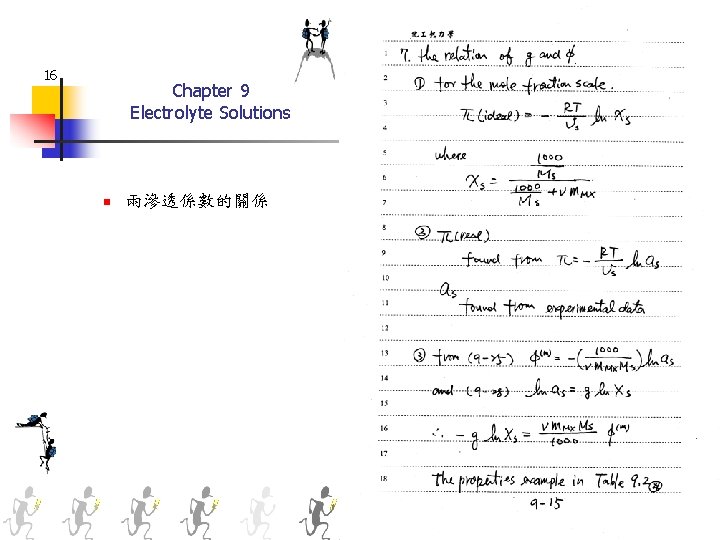 16
Chapter 9
Electrolyte Solutions
兩滲透係數的關係
化工熱力學
1 7. the relation of g and ϕ
2 ① for the mole fraction scale.
3 π(ideal) = - RT/Vs ln Xs
4
5 where
6 Xs = (1000/Ms) / (1000/Ms + ν mMX)
7
8 ② π(real)
9 found from π = - RT/Vs ln as
10 as
11 found from experimental data
12
13 ③ from (9-25) ϕ(m) = -(1000/ν mMX Ms) ln as
14 and (9-28) ln as = g ln Xs
15
16 ∴ - g ln Xs = ν mMX Ms/1000 ϕ(m)
17
18 The properties example in Table 9.2
9-15